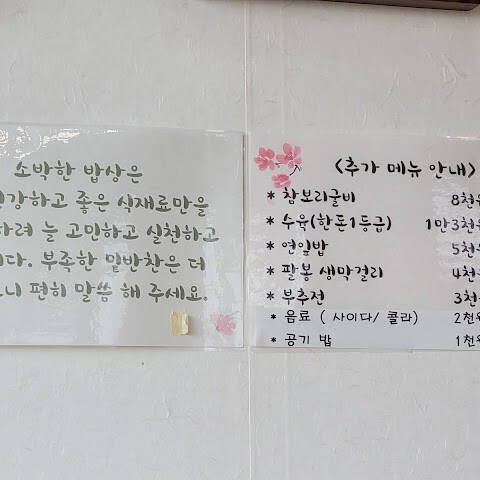 소박한 밥상은
강하고 좋은 식재료만을
하려 늘 고민하고 실천하고
다. 부족한 밑반찬은 더
니 편히 말씀 해 주세요.
<추가 메뉴 안내>
* 참보리굴비 8천
* 수육(한돈1등급) 1만3천
* 연잎밥 5천
* 팔봉 생막걸리 4천
* 부추전 3천
* 음료 ( 사이다/ 콜라) 2천
* 공기 밥 1천